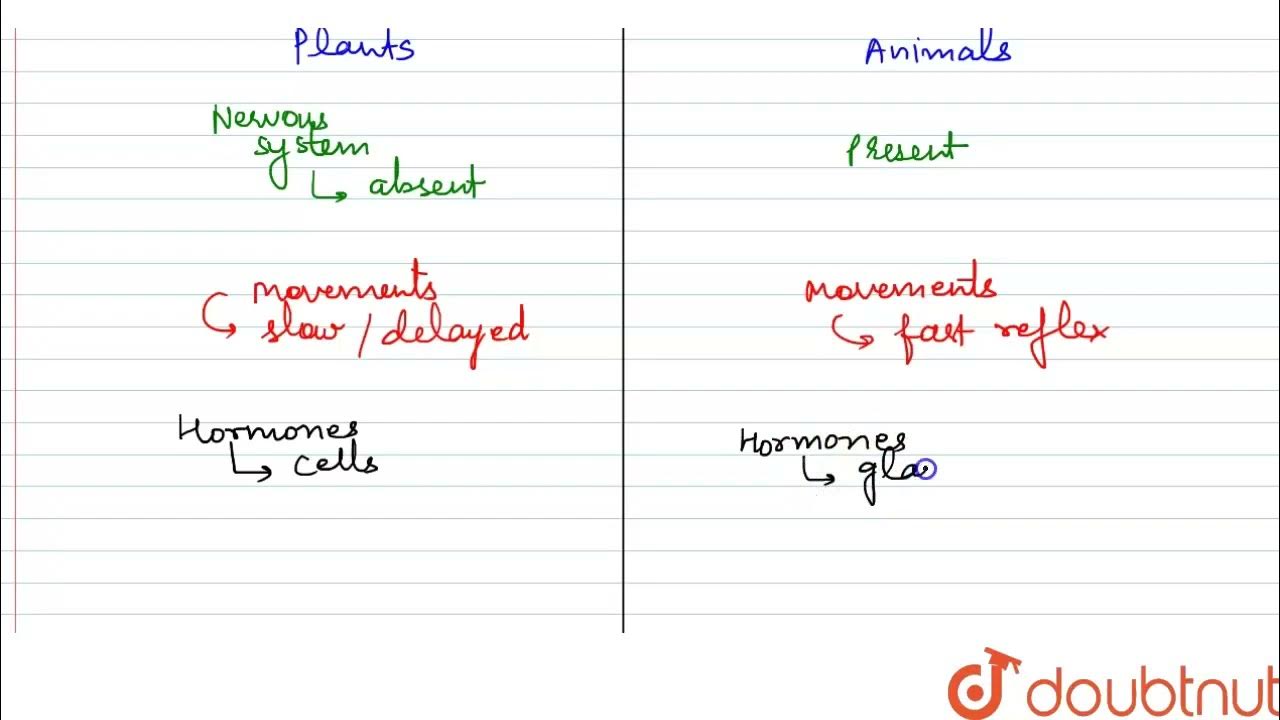 Plants
Animals
Nervous
system
absent
Present
movements
slow / delayed
Movements
fast reflex
Hormones
cells
Hormones
gla
doubtnut